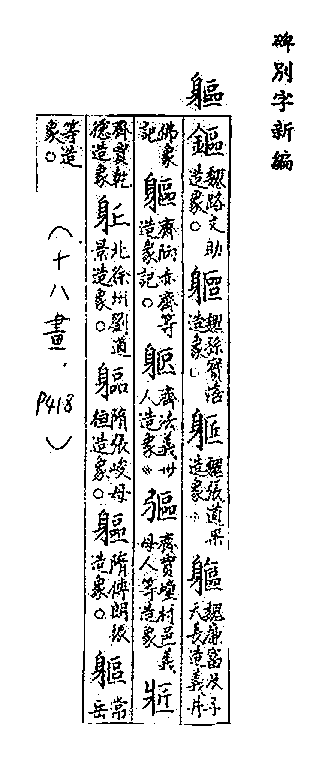 碑別字新編
軀
鏂魏路文助造象。軀魏孫寶憘造象。軀魏張道果造象。軀魏廉富及子天長造義井
佛象記軀齊阿赤齊等造象記。軀齊法義卅人造象。軀齊賈墥村邑義母人等造象
齊賈乾德造象北徐州劉道景造象。軀隋張峻母桓造象。軀隋傅朗振造象。軀常岳
等造象。
（十八畫．P418）